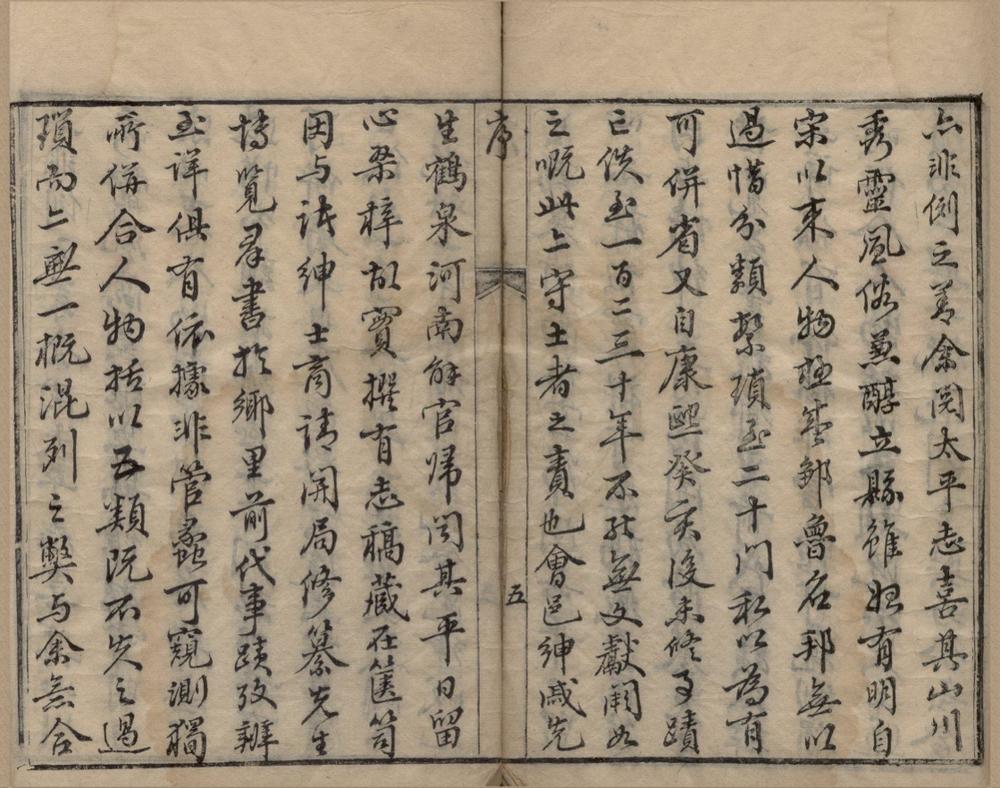 亦非例之善余閱太平志喜其山川
秀靈風俗蕙醇立縣雖始有明自
宋以來人物極盛鄒魯名邦無以
過惜分類繁瑣至二十門私以為有
可併省又自康熙癸亥後未修事蹟
已佚至一百二三十年不能無文獻闕如
之嘅此亦守土者之責也會邑紳戚先
序
五
生鶴泉河南解官歸閱其平日留
心桑梓故實撰有志稿藏在篋笥
因与諸紳士商請開局修纂先生
博覽羣書於鄉里前代事蹟攷辨
至詳俱有依據非管蠡可窺測獨
所併合人物括以五類既不失之過
瑣而亦無一概混列之弊与余意合